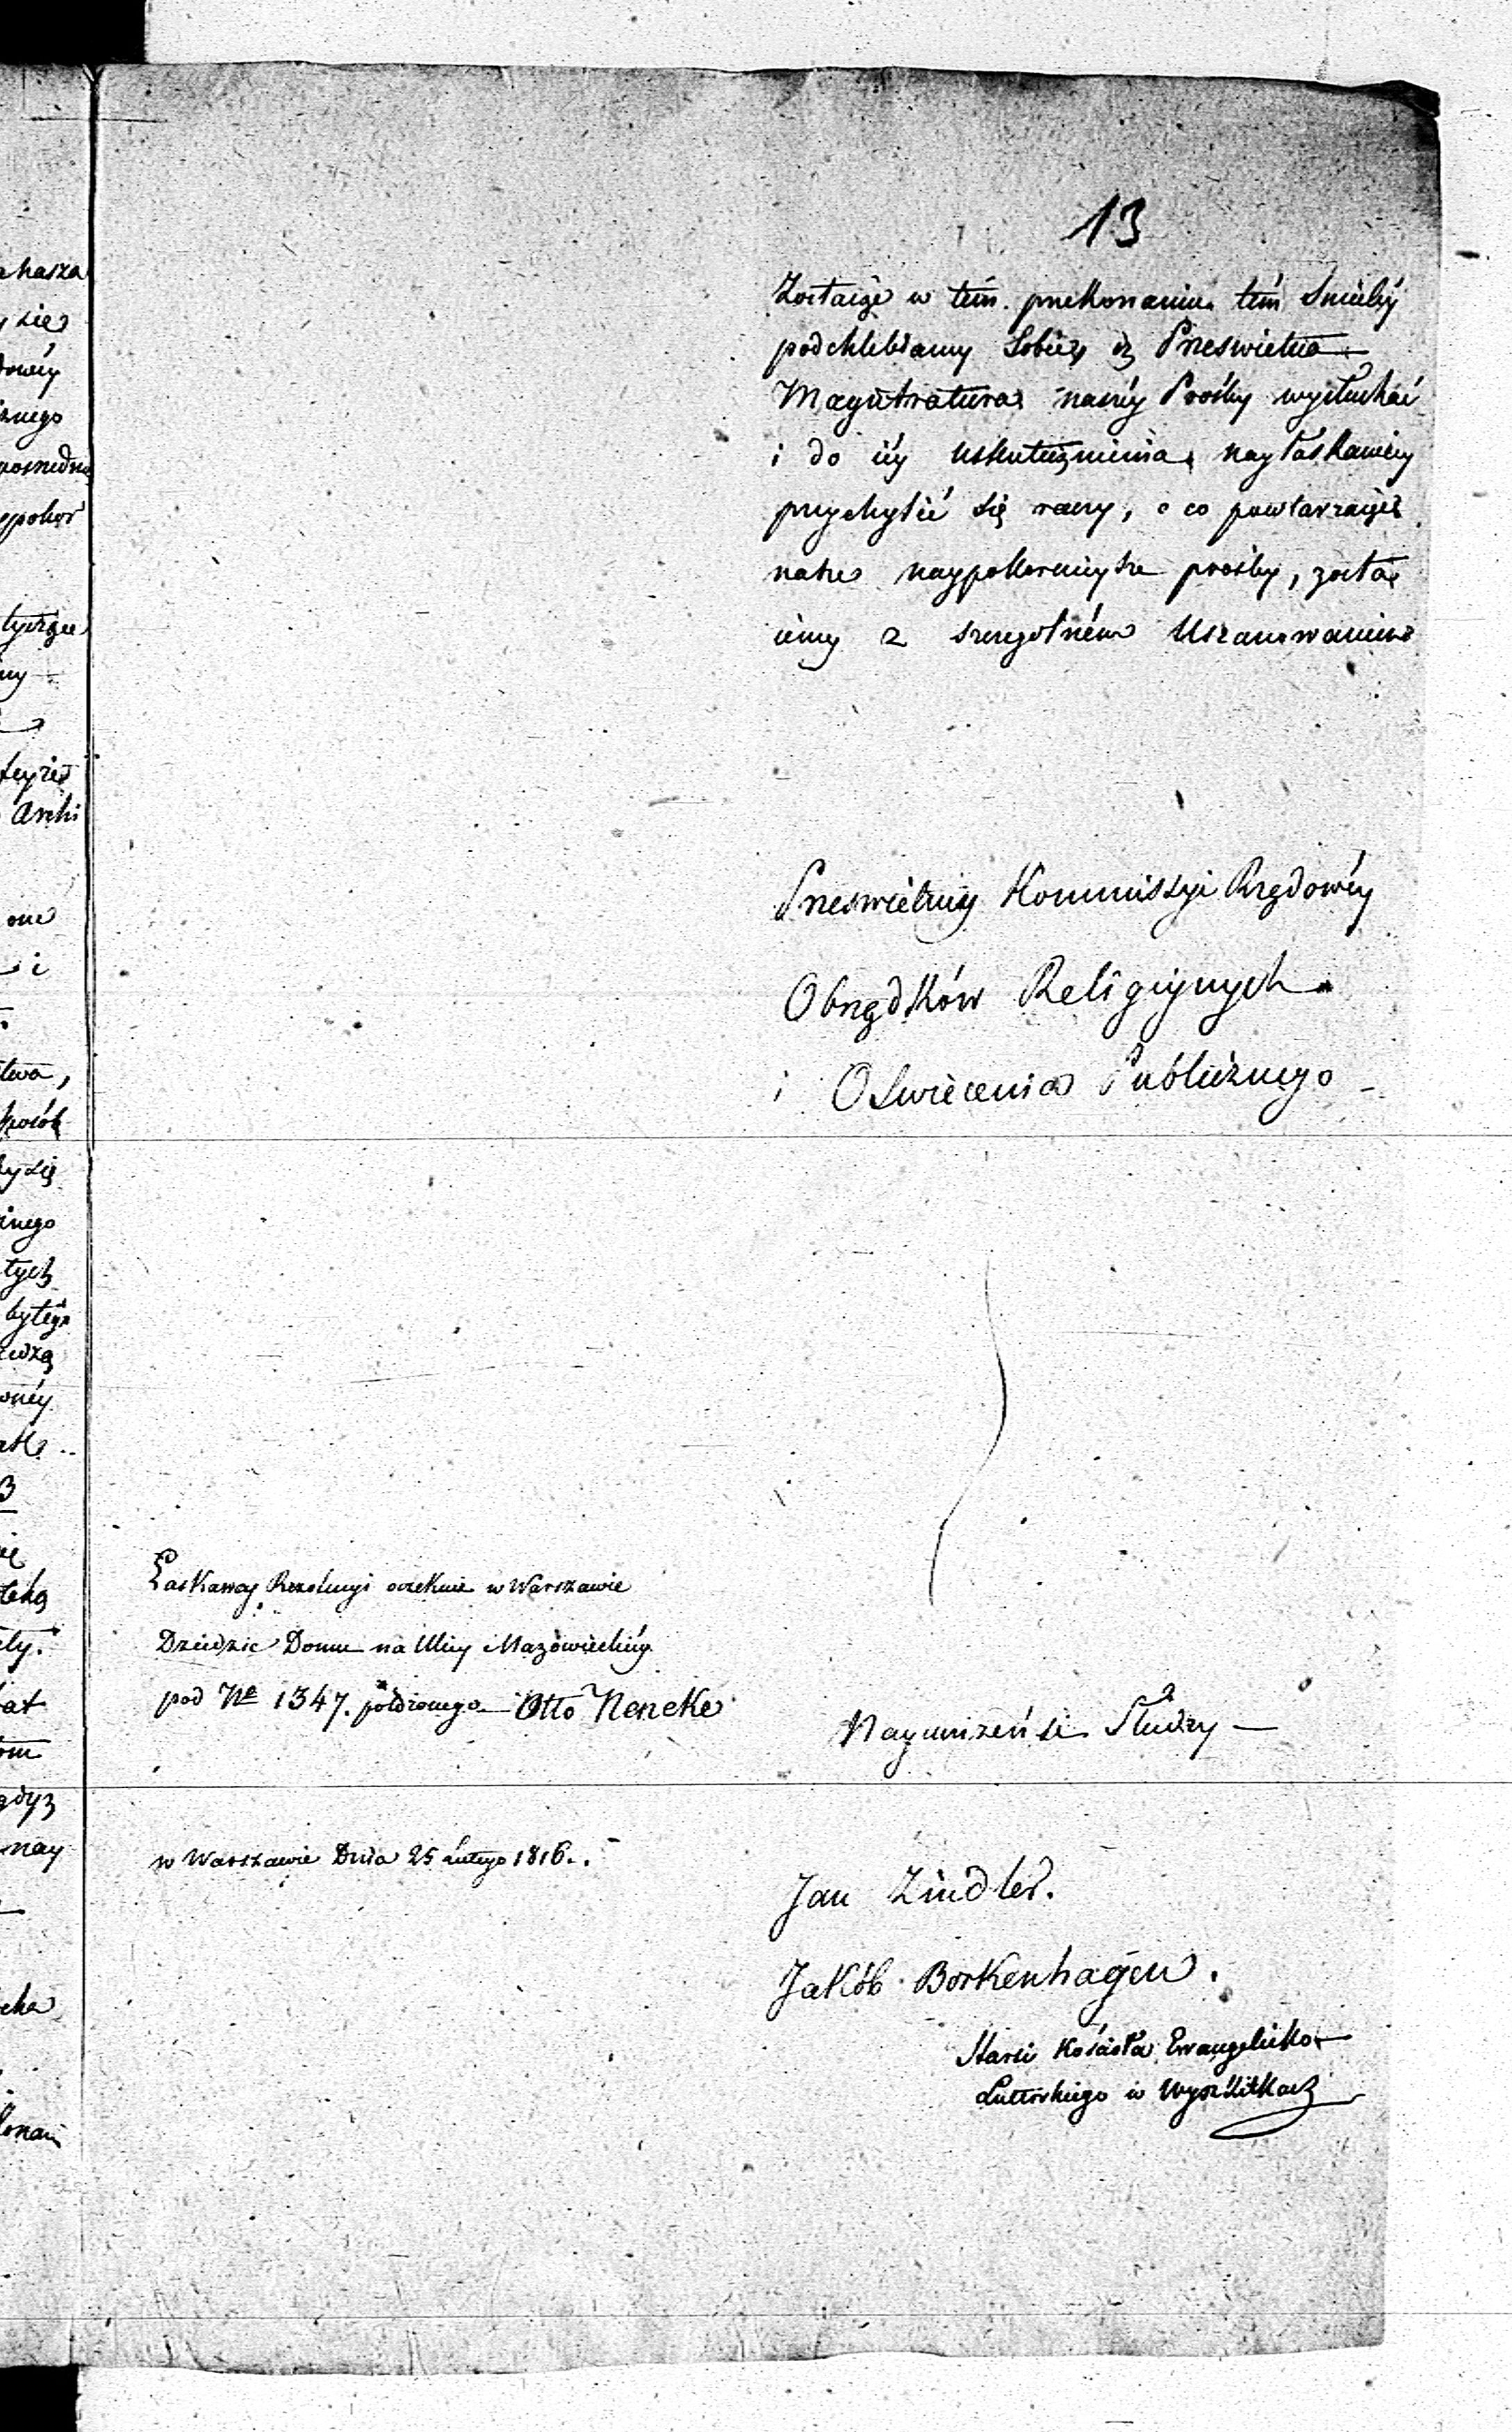 13
Zostaiąc w tém przekonaniu tém śmieléy
podchlebiamy Sobie, iż Prześwietna
Magistratura naszéy Prośby wysłuchać
i do iéy uskutecznienia nayłaskawiéy
przychylić się raczy, o co powtarzaiąc
nasze naypokornieysze prośby, zosta
iemy z szczególném Uszanowaniem
Prześwietnéy Kommissyi Rządowéy
Obrządków Religiynych
i Oświecenia Publicznego
Łaskawey Rezolucyi oczekuie w Warszawie
Dziedzic Domu na Ulicy Mazowieckiéy
pod Nº 1347. położonego — Otto Neneke
Nayuniżeńsi Słudzy —
w Warszawie Dnia 25 Lutego 1816.
Jan Zindler.
Jakób Borkenhagen.
Starsi Kościoła Ewangelicko
Luterskiego w Wyszkitkach